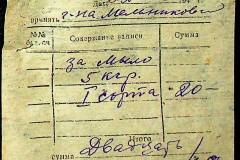 принять г-на Мельникова
№№ Содержание записи Сумма
за мыло
5 кгр.
I сорта 20-
Итого
сумма Двадцать